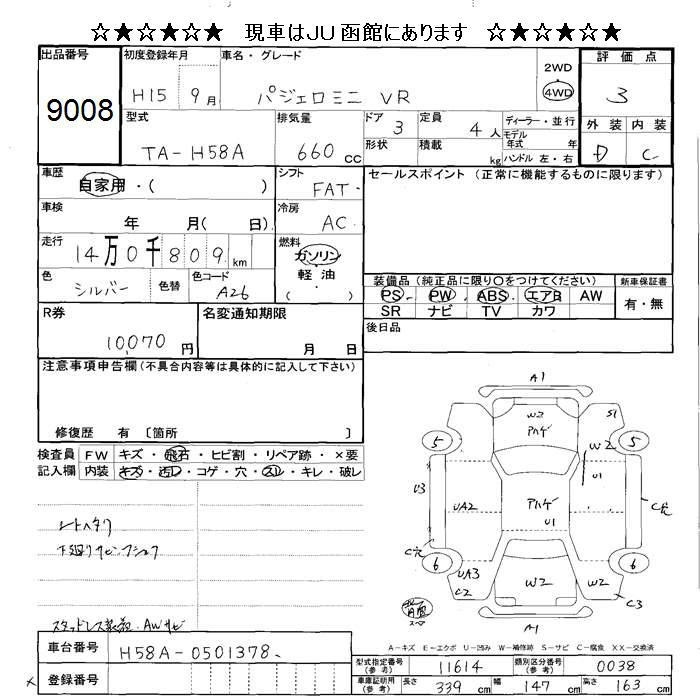 ☆★☆★☆★ 現車はJU函館にあります ☆★☆★☆★
出品番号
9008
初度登録年月
H15 9月
車名・グレード
パジェロミニ VR
2WD
4WD
評価点
3
型式
TA-H58A
排気量
660cc
ドア 3
形状
定員 4人
積載 kg
ディーラー・並行
モデル
年式 年
ハンドル 左・右
外装 内装
D C
車歴
自家用・( )
シフト
FAT
セールスポイント(正常に機能するものに限ります)
車検
年 月( 日)
冷房
AC
走行
14万0千809km
燃料
ガソリン
軽油
( )
色
シルバー
色替
色コード
A26
装備品(純正品に限り○をつけてください)
PS PW ABS エアB AW
SR ナビ TV カワ
新車保証書
有・無
R券
10,070円
名変通知期限
月 日
後日品
注意事項申告欄(不具合内容等は具体的に記入して下さい)
修復歴 有 〔箇所 〕
検査員
記入欄
FW キズ・飛石・ヒビ割・リペア跡・×要
内装 キズ・汚レ・コゲ・穴・スレ・キレ・破レ
シートヘタリ
下廻りサビ・フショク
スタッドレス装着・AWサビ
A1
W2
Aハゲ
S1
5
5
W2
U3
UA2
Aハゲ
U1
U1
C穴
C穴
6
6
UA3
C2
W2
W2
C3
A1
A-キズ E-エクボ U-凹み W-補修跡 S-サビ C-腐食 XX-交換済
車台番号
H58A-0501378
登録番号
型式指定番号
(参考)
11614
類別区分番号
(参考)
0038
車庫証明用
(参考)
長さ 339cm
幅 147cm
高さ 163cm